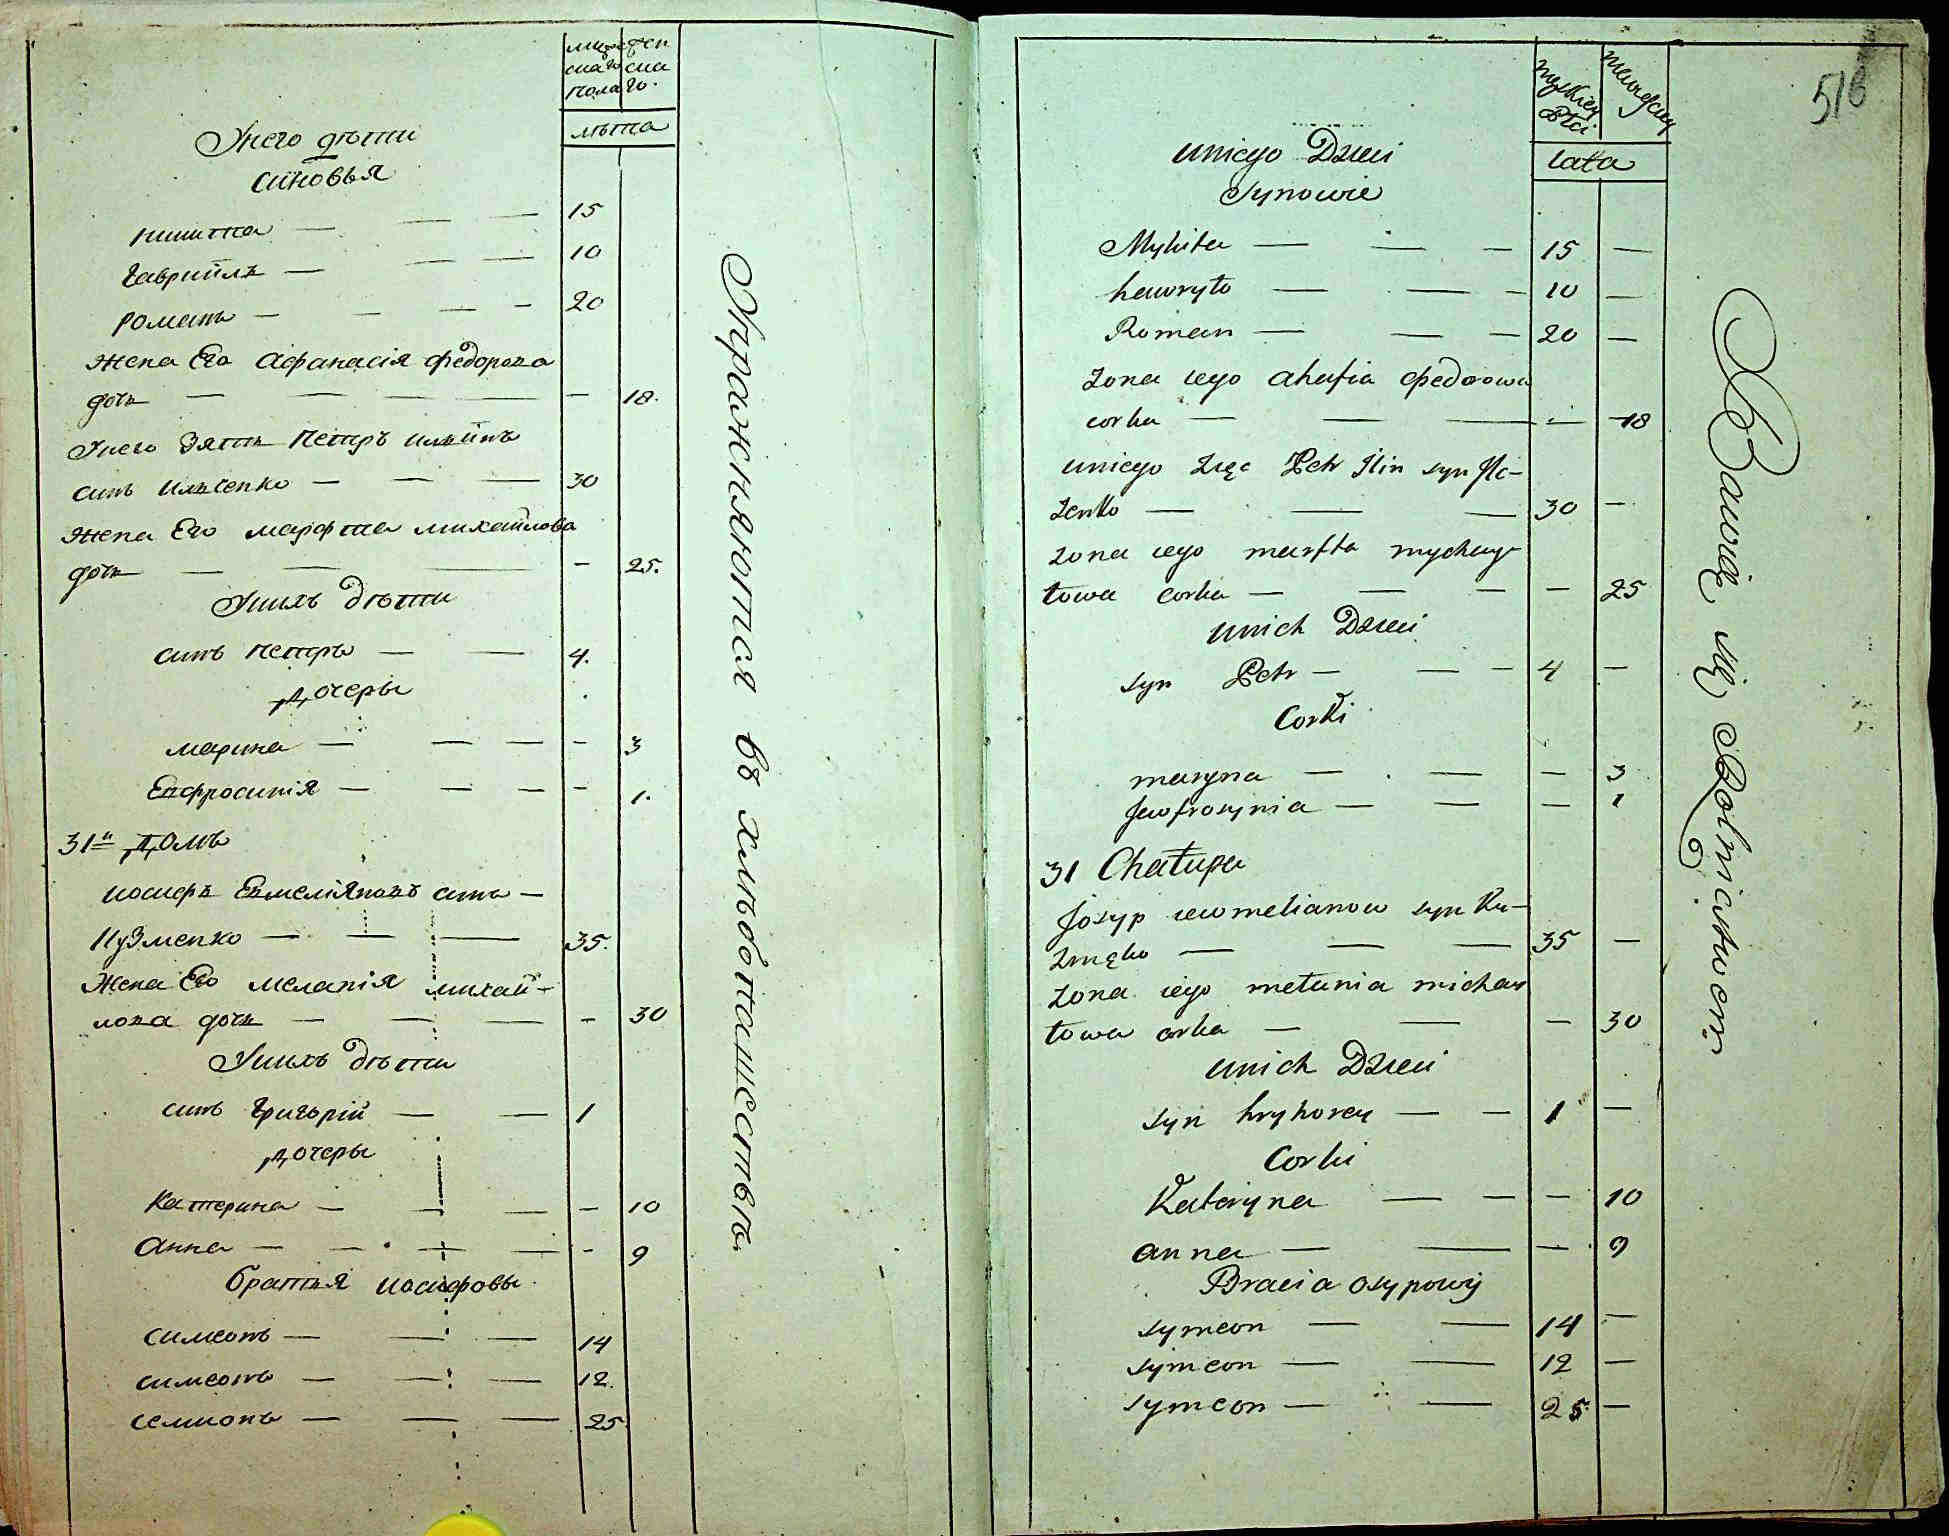 мужескаго пола
женскаго
лѣта
Унего дѣти
синовья
никита — — — 15
Гавриилъ — — — 10
романъ — — — 20
жена Его Афанасія федорова
дочь — — — — — 18.
Унего Зять петръ ильинъ
синъ ильченко — — — 30
жена Его марфта михайлова
дочь — — — — 25.
Унихъ дѣти
синъ петръ — — 4.
дочеры
марина — — — — 3
Евфросинія — — — — 1.
31й домъ
иосифъ Евмеліяновъ синъ —
Кузменко — — — 35.
жена Его меланія михай-
лова дочь — — — — 30
Унихъ дѣти
синъ Григорій — — 1
дочеры
катерина — — — — 10
анна — — — — — 9
братья иосифовы
симеонъ — — — 14
симеонъ — — — 12.
семионъ — — — 25
Упражняются въ хлѣбопашествѣ
516
męzkiey Płci
żenskiey
lata
unicyo Dzieci
Synowie
Mykita — — — 15 —
hawryło — — — 10 —
Roman — — — 20 —
żona iego ahafia Fedorowa
corka — — — — 18
uniego zięc Petr Ilin syn Ilc-
zenko — — — 30 —
żona iego marfta mychay-
łowa corka — — — — 25
unich Dzieci
syn Petr — — — 4 —
Corki
maryna — — — 3
Jewfrosynia — — — 1
31 Chałupa
Josyp iewmelianow syn Ku-
zmęko — — — 35 —
żona iego mełania michay
łowa corka — — — 30
unich Dzieci
syn hryhorey — — 1 —
Corki
Kateryna — — — 10
anna — — — 9
Bracia osypowy
symeon — — 14 —
symeon — — 12 —
symeon — — 25 —
Bawią się Rolnictwem